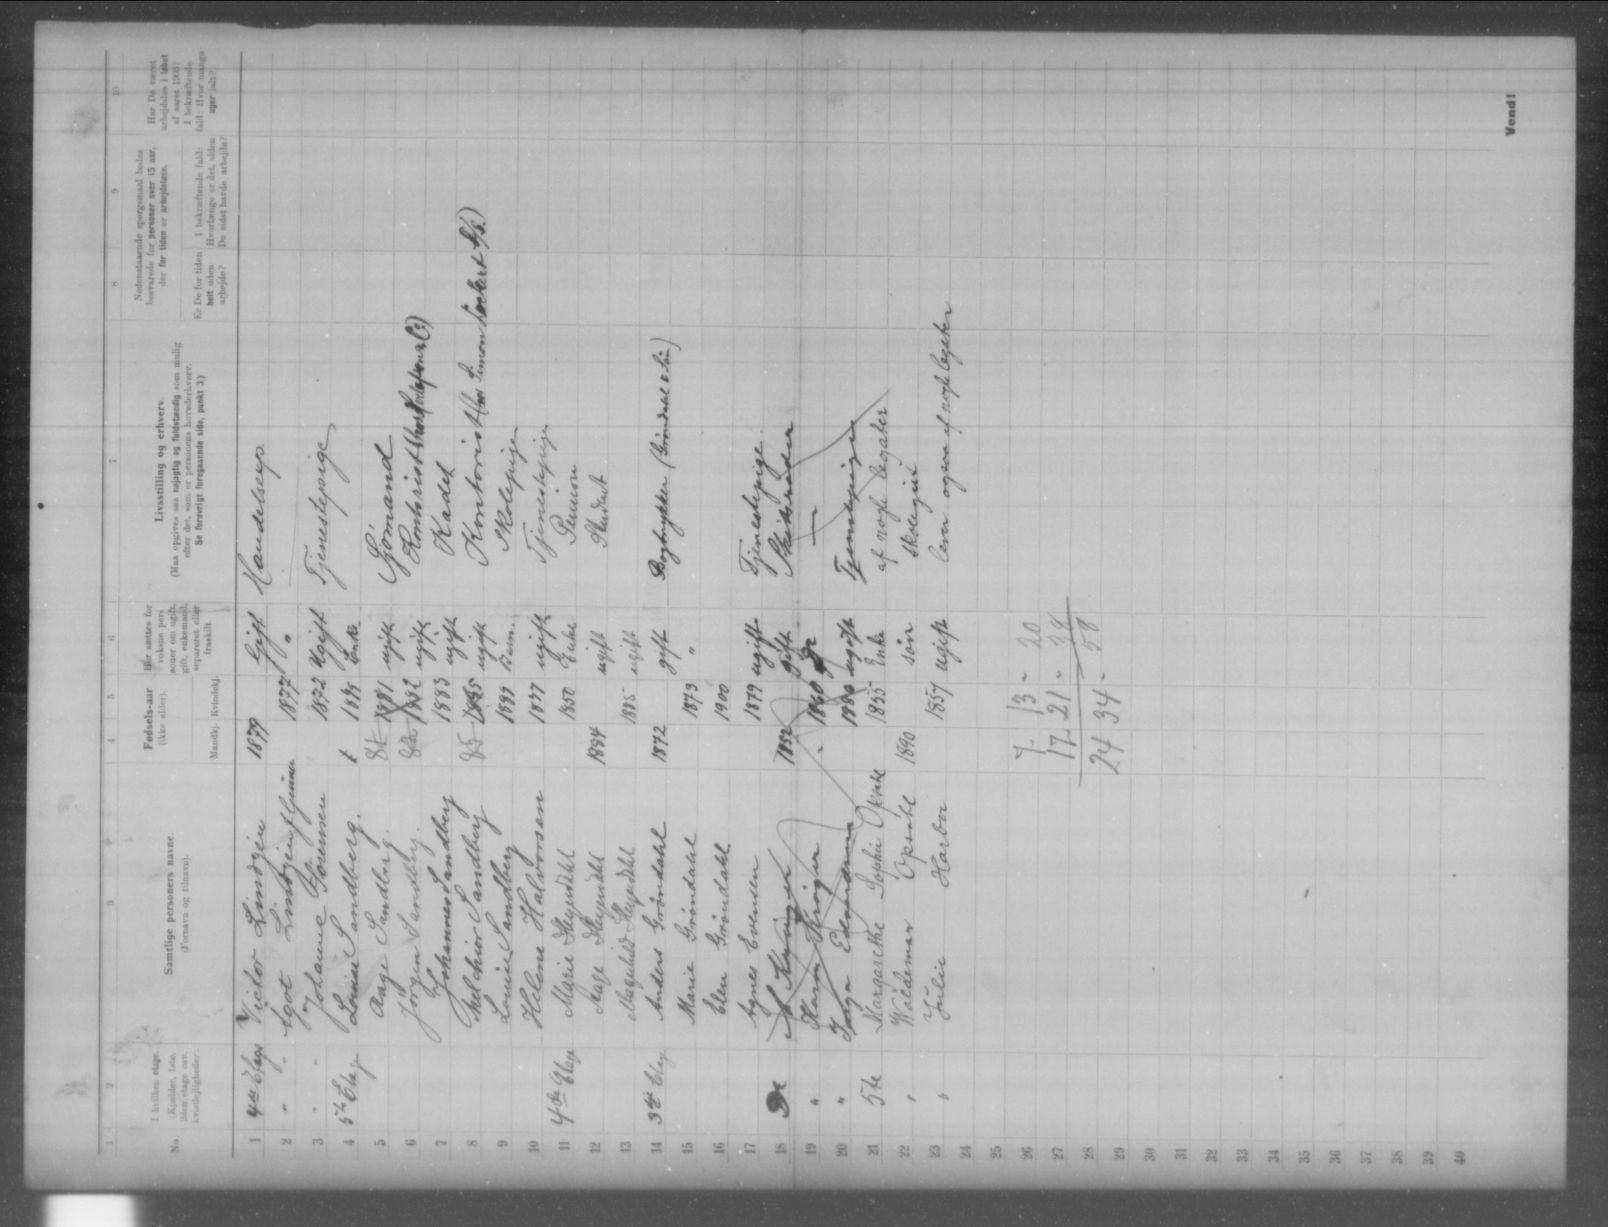 1 2 3 4 5 6 7 8 9 10
No.
I hvilken etage. (Kjælder, 1ste, 2den etage osv. kvistleiligheder.
Samtlige personers navne. (Fornavn og tilnavn).
Fødsels-aar (ikke alder). Mandkj. Kvindekj.
Her sættes for voksne personer om ugift, gift, enkemand, separeret eller fraskilt.
Livsstilling og erhverv. (Maa opgives saa nøjagtig og fuldstændig som mulig efter det, som er personens hovederhverv. Se forøvrigt foregaaende side, punkt 3.)
Nedenstaaende spørgsmaal bedes besvarede for personer over 15 aar, der for tiden er arbejdsløse.
Er De for tiden helt uden arbejde?
I bekræftende fald: Hvorlænge er det, siden De sidst havde arbejde?
Har De været arbejdsløs i løbet af aaret 1905? I bekræftende fald: Hvor mange uger ialt?
1 4de Etage Victor Lindgjen 1879 Gift Handelsexp.
2 " Agot 1877 "
3 " Johanne Sørensen 1872 Ugift Tjenestepige
4 5te Etage Louise Sandberg. Enke
5 Aage Sandberg. 81 1881 ugift Sjømand
6 Jørgen Sandberg. 82 1882 ugift Kontorist
7 Johannes Sandberg 1883 ugift Kadet
8 Melchior Sandberg 85 1885 ugift Kontorist
9 Louise Sandberg Barn. Skolepige
10 Helene Halvorsen 1877 ugift Tjenestepige
11 4de Etage Marie 1850 Enke Pension
12 Aage 1884 ugift Student
13 Magnhild 1885 ugift
14 3die Etag Anders Grøndahl 1872 gift Bogtrykker (Grøndahl & Søn)
15 Marie Grøndahl 1873 "
16 Elen Grøndahl 1900
17 Agnes Evensen 1879 ugift Tjenestepige
18 Do 1852 gift Skibsreder
19 " Karen 1860 Do —
20 " Inga ugift Tjenestepige
21 5te Margarethe Sophie 1855 Enke af nogle legater
22 " Waldemar 1890 søn skolegut
23 " Julie Harboe 1857 ugift lever ogsaa af nogle legater
24
25
26 7 - 13 - 20
27 17 - 21 - 38
28 58
29 24 34 -
30
31
32
33
34
35
36
37
38
39
40
Vend!